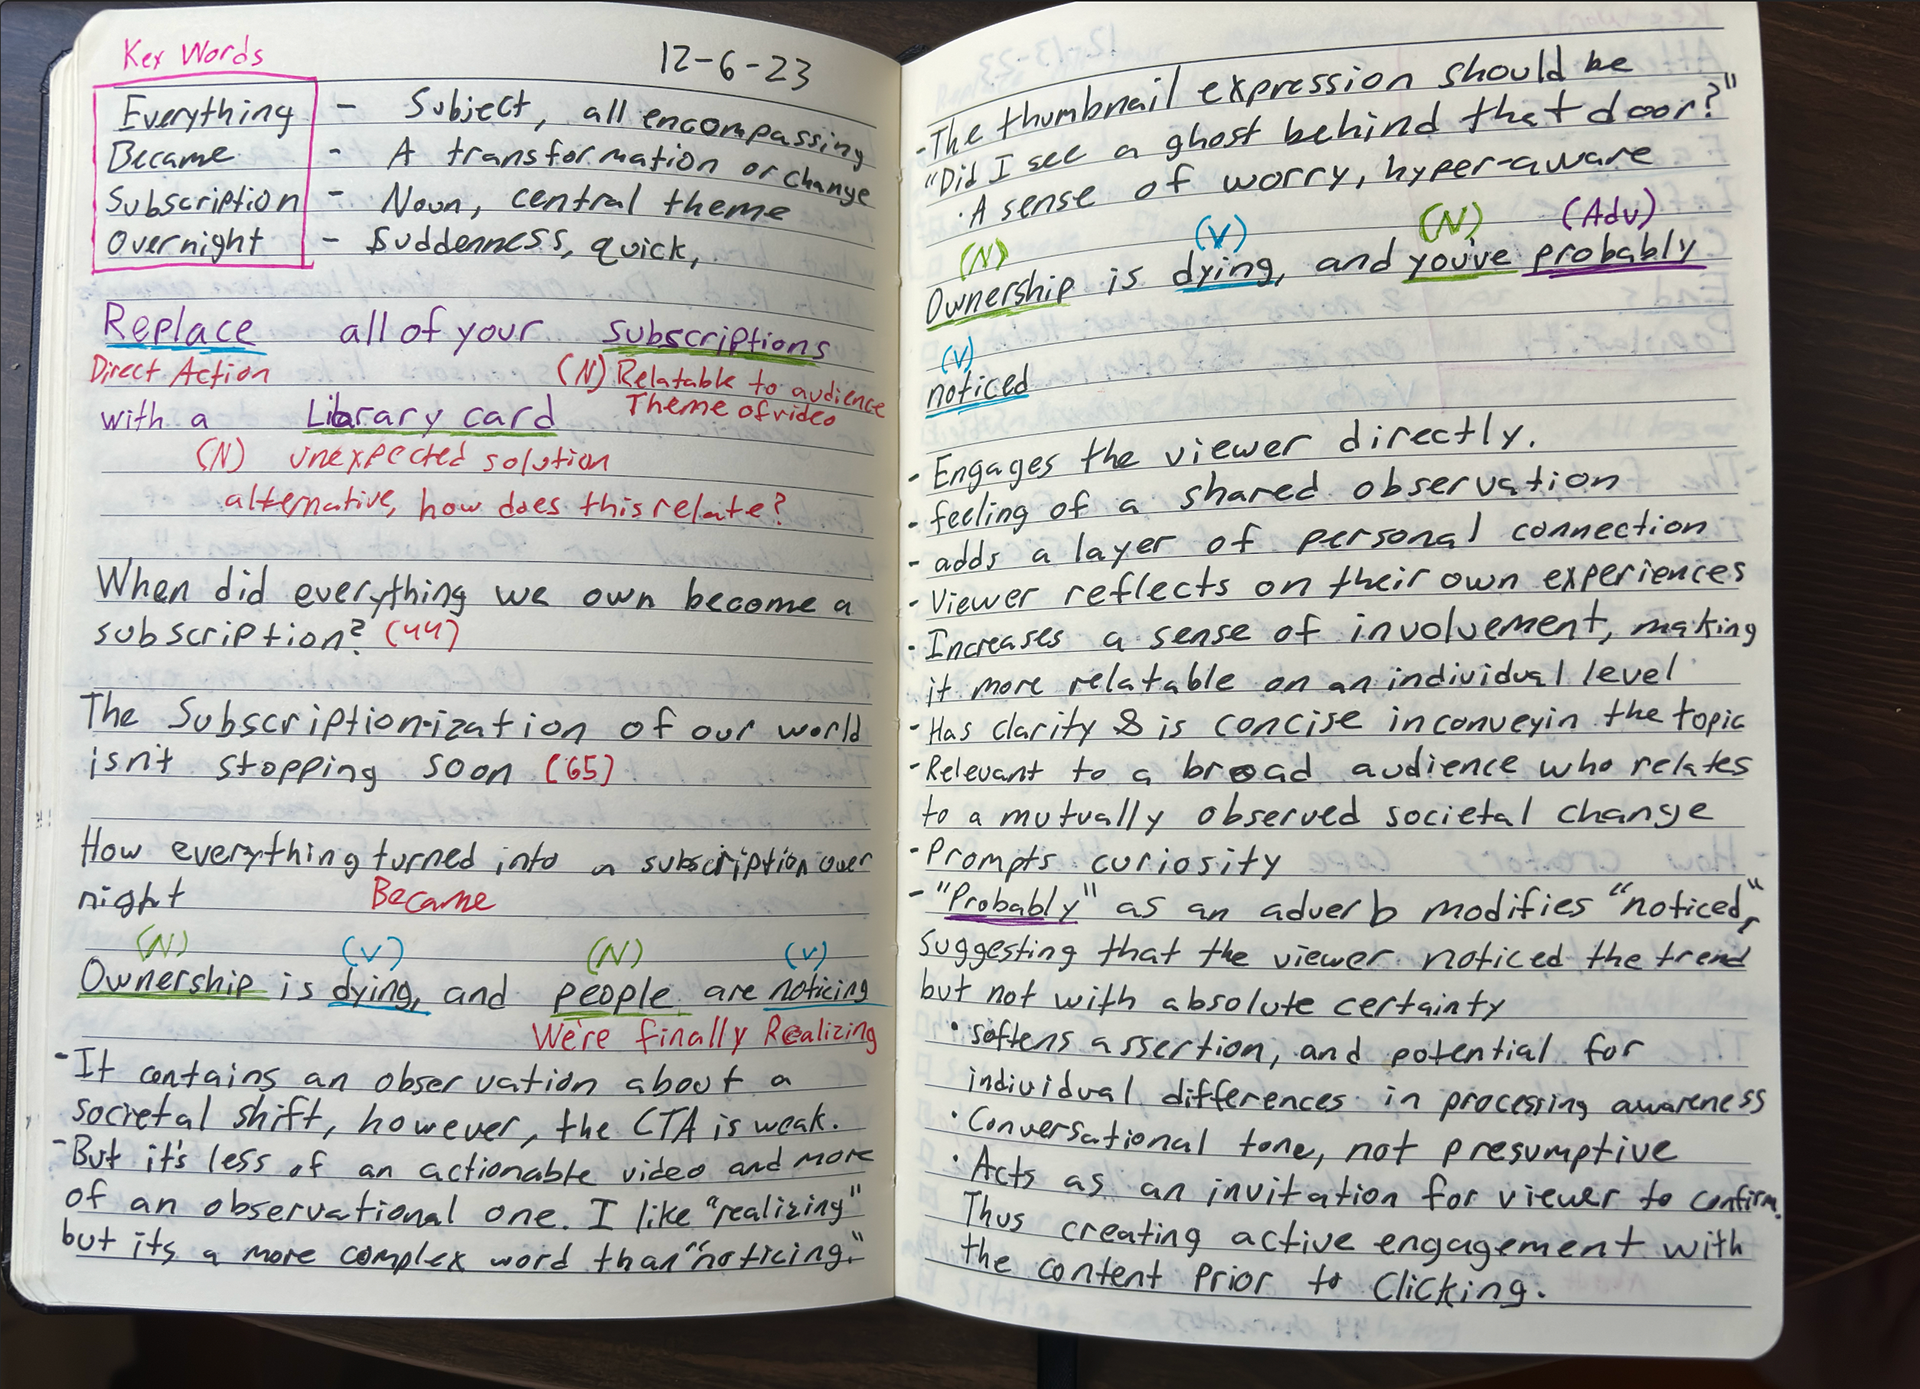 Key Words
12-6-23
Everything - Subject, all encompassing
Became - A transformation or change
Subscription - Noun, central theme
Overnight - Suddenness, quick,
Replace all of your subscriptions
Direct Action (N) Relatable to audience
Theme of video
with a Library card
(N) unexpected solution
alternative, how does this relate?
When did everything we own become a
subscription? (44)
The Subscription-ization of our world
isn't stopping soon (65)
How everything turned into a subscription over
night Became
(N) (V) (N) (V)
Ownership is dying, and people are noticing
We're finally Realizing
- It contains an observation about a
societal shift, however, the CTA is weak.
- But it's less of an actionable video and more
of an observational one. I like "realizing"
but its a more complex word than "noticing."
- The thumbnail expression should be
"Did I see a ghost behind that door?"
· A sense of worry, hyper-aware
(N) (V) (N) (Adv)
Ownership is dying, and you've probably
(V)
noticed
- Engages the viewer directly.
- feeling of a shared observation
- adds a layer of personal connection
- Viewer reflects on their own experiences
- Increases a sense of involvement, making
it more relatable on an individual level
- Has clarity & is concise in conveyin the topic
- Relevant to a broad audience who relates
to a mutually observed societal change
- Prompts curiosity
- "Probably" as an adverb modifies "noticed",
suggesting that the viewer noticed the trend
but not with absolute certainty
· softens assertion, and potential for
individual differences in processing awareness
· Conversational tone, not presumptive
· Acts as an invitation for viewer to confirm.
Thus creating active engagement with
the content prior to clicking.